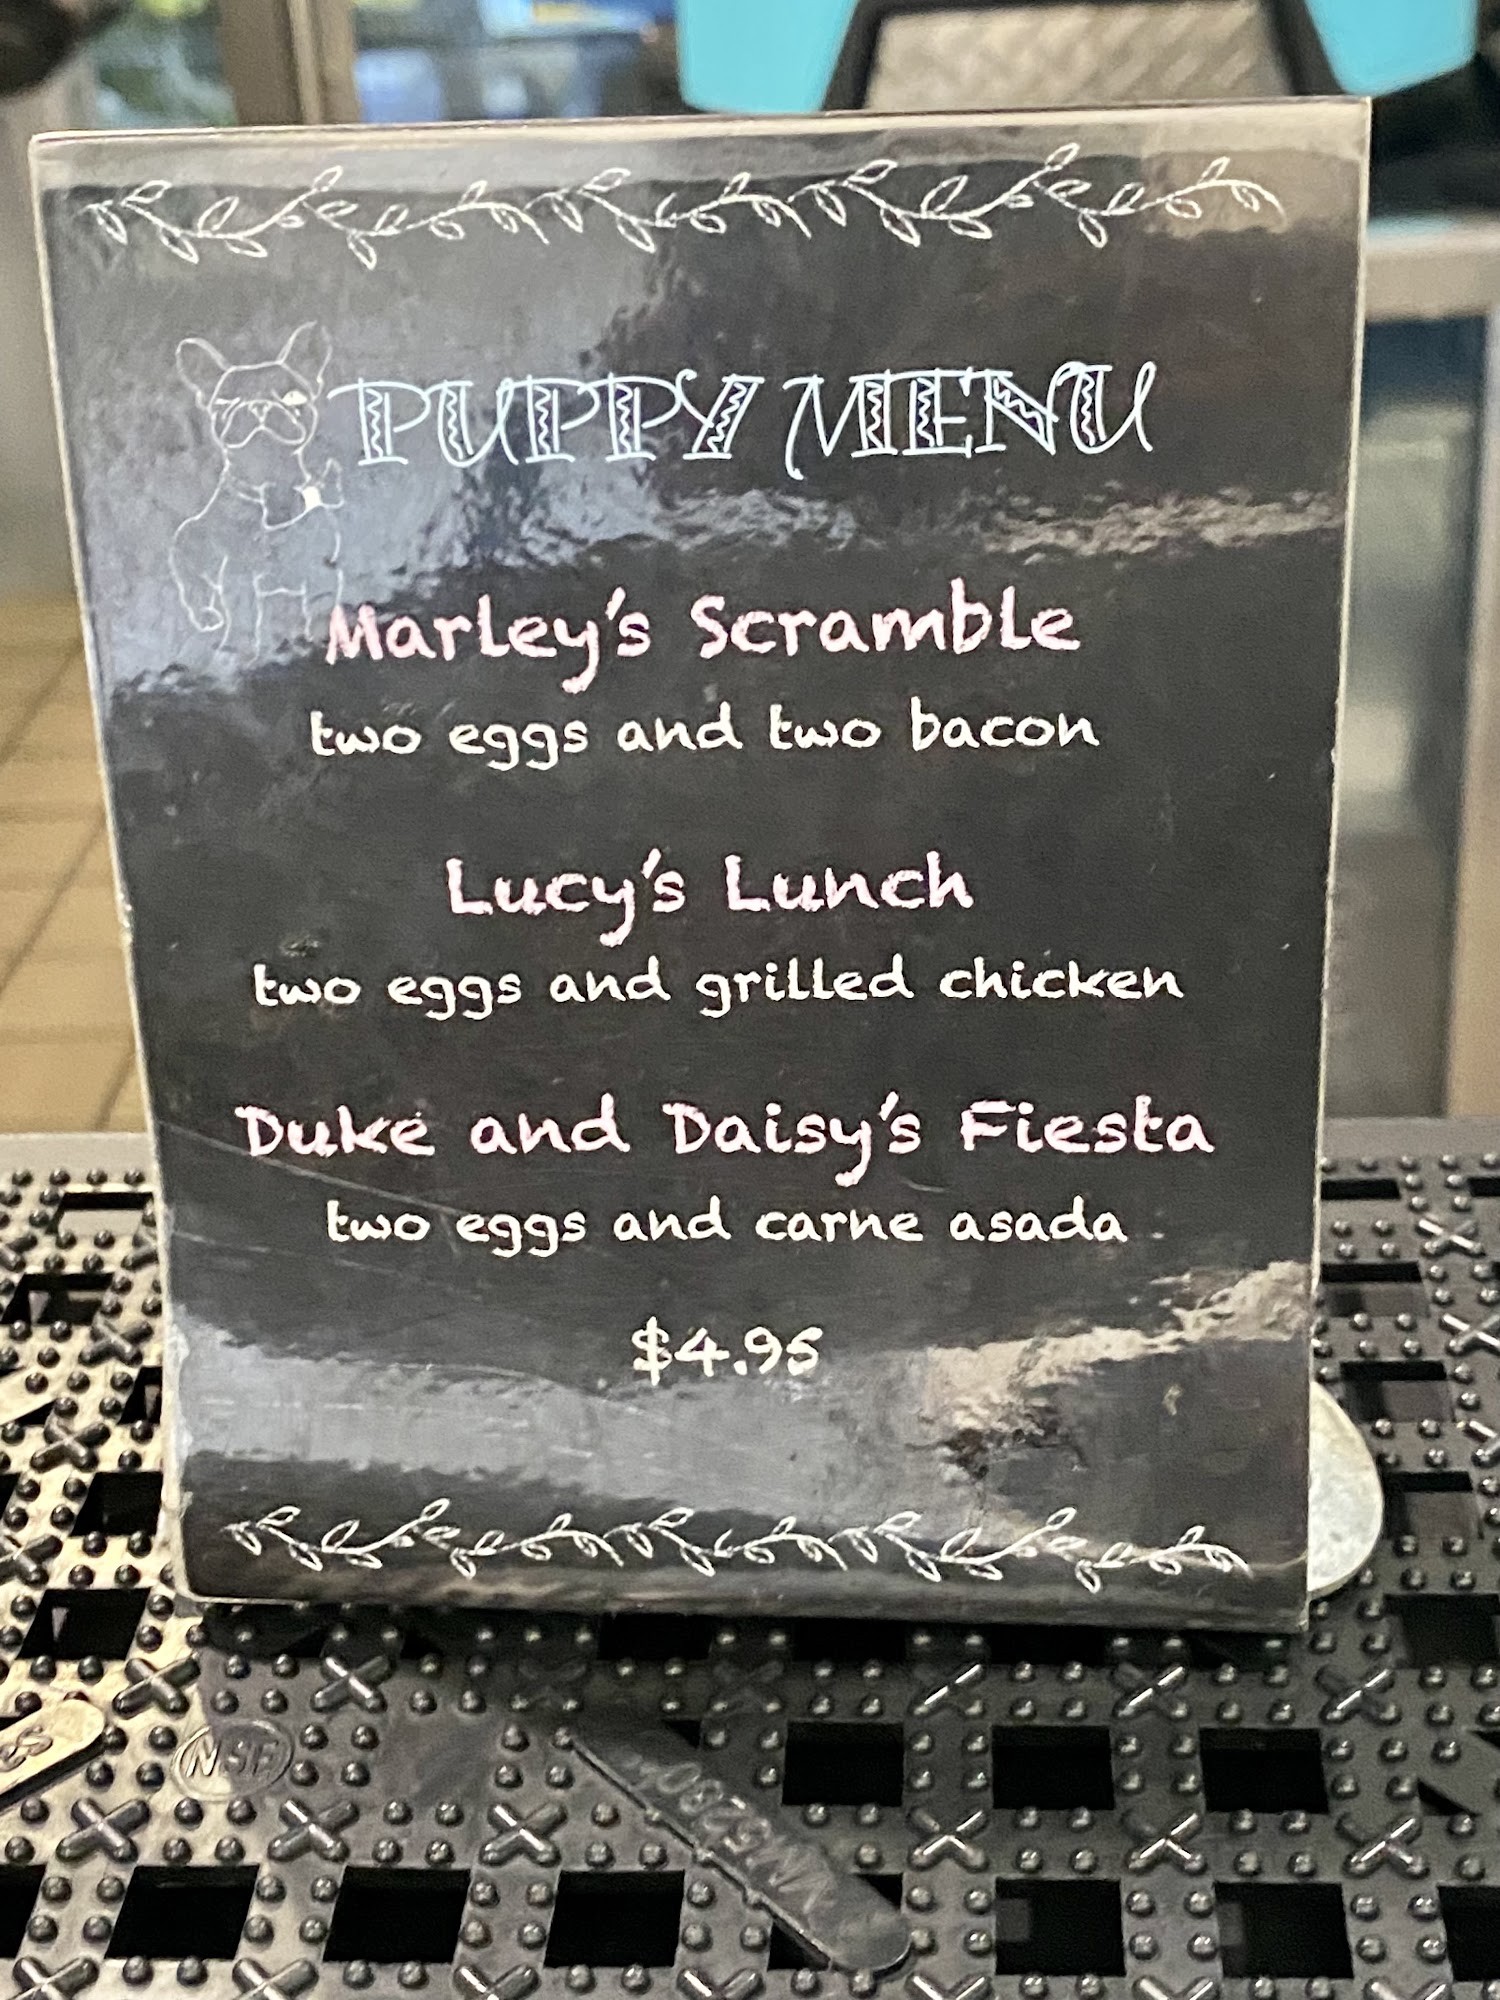 PUPPY MENU
Marley's Scramble
two eggs and two bacon
Lucy's Lunch
two eggs and grilled chicken
Duke and Daisy's Fiesta
two eggs and carne asada
$4.95
NSF